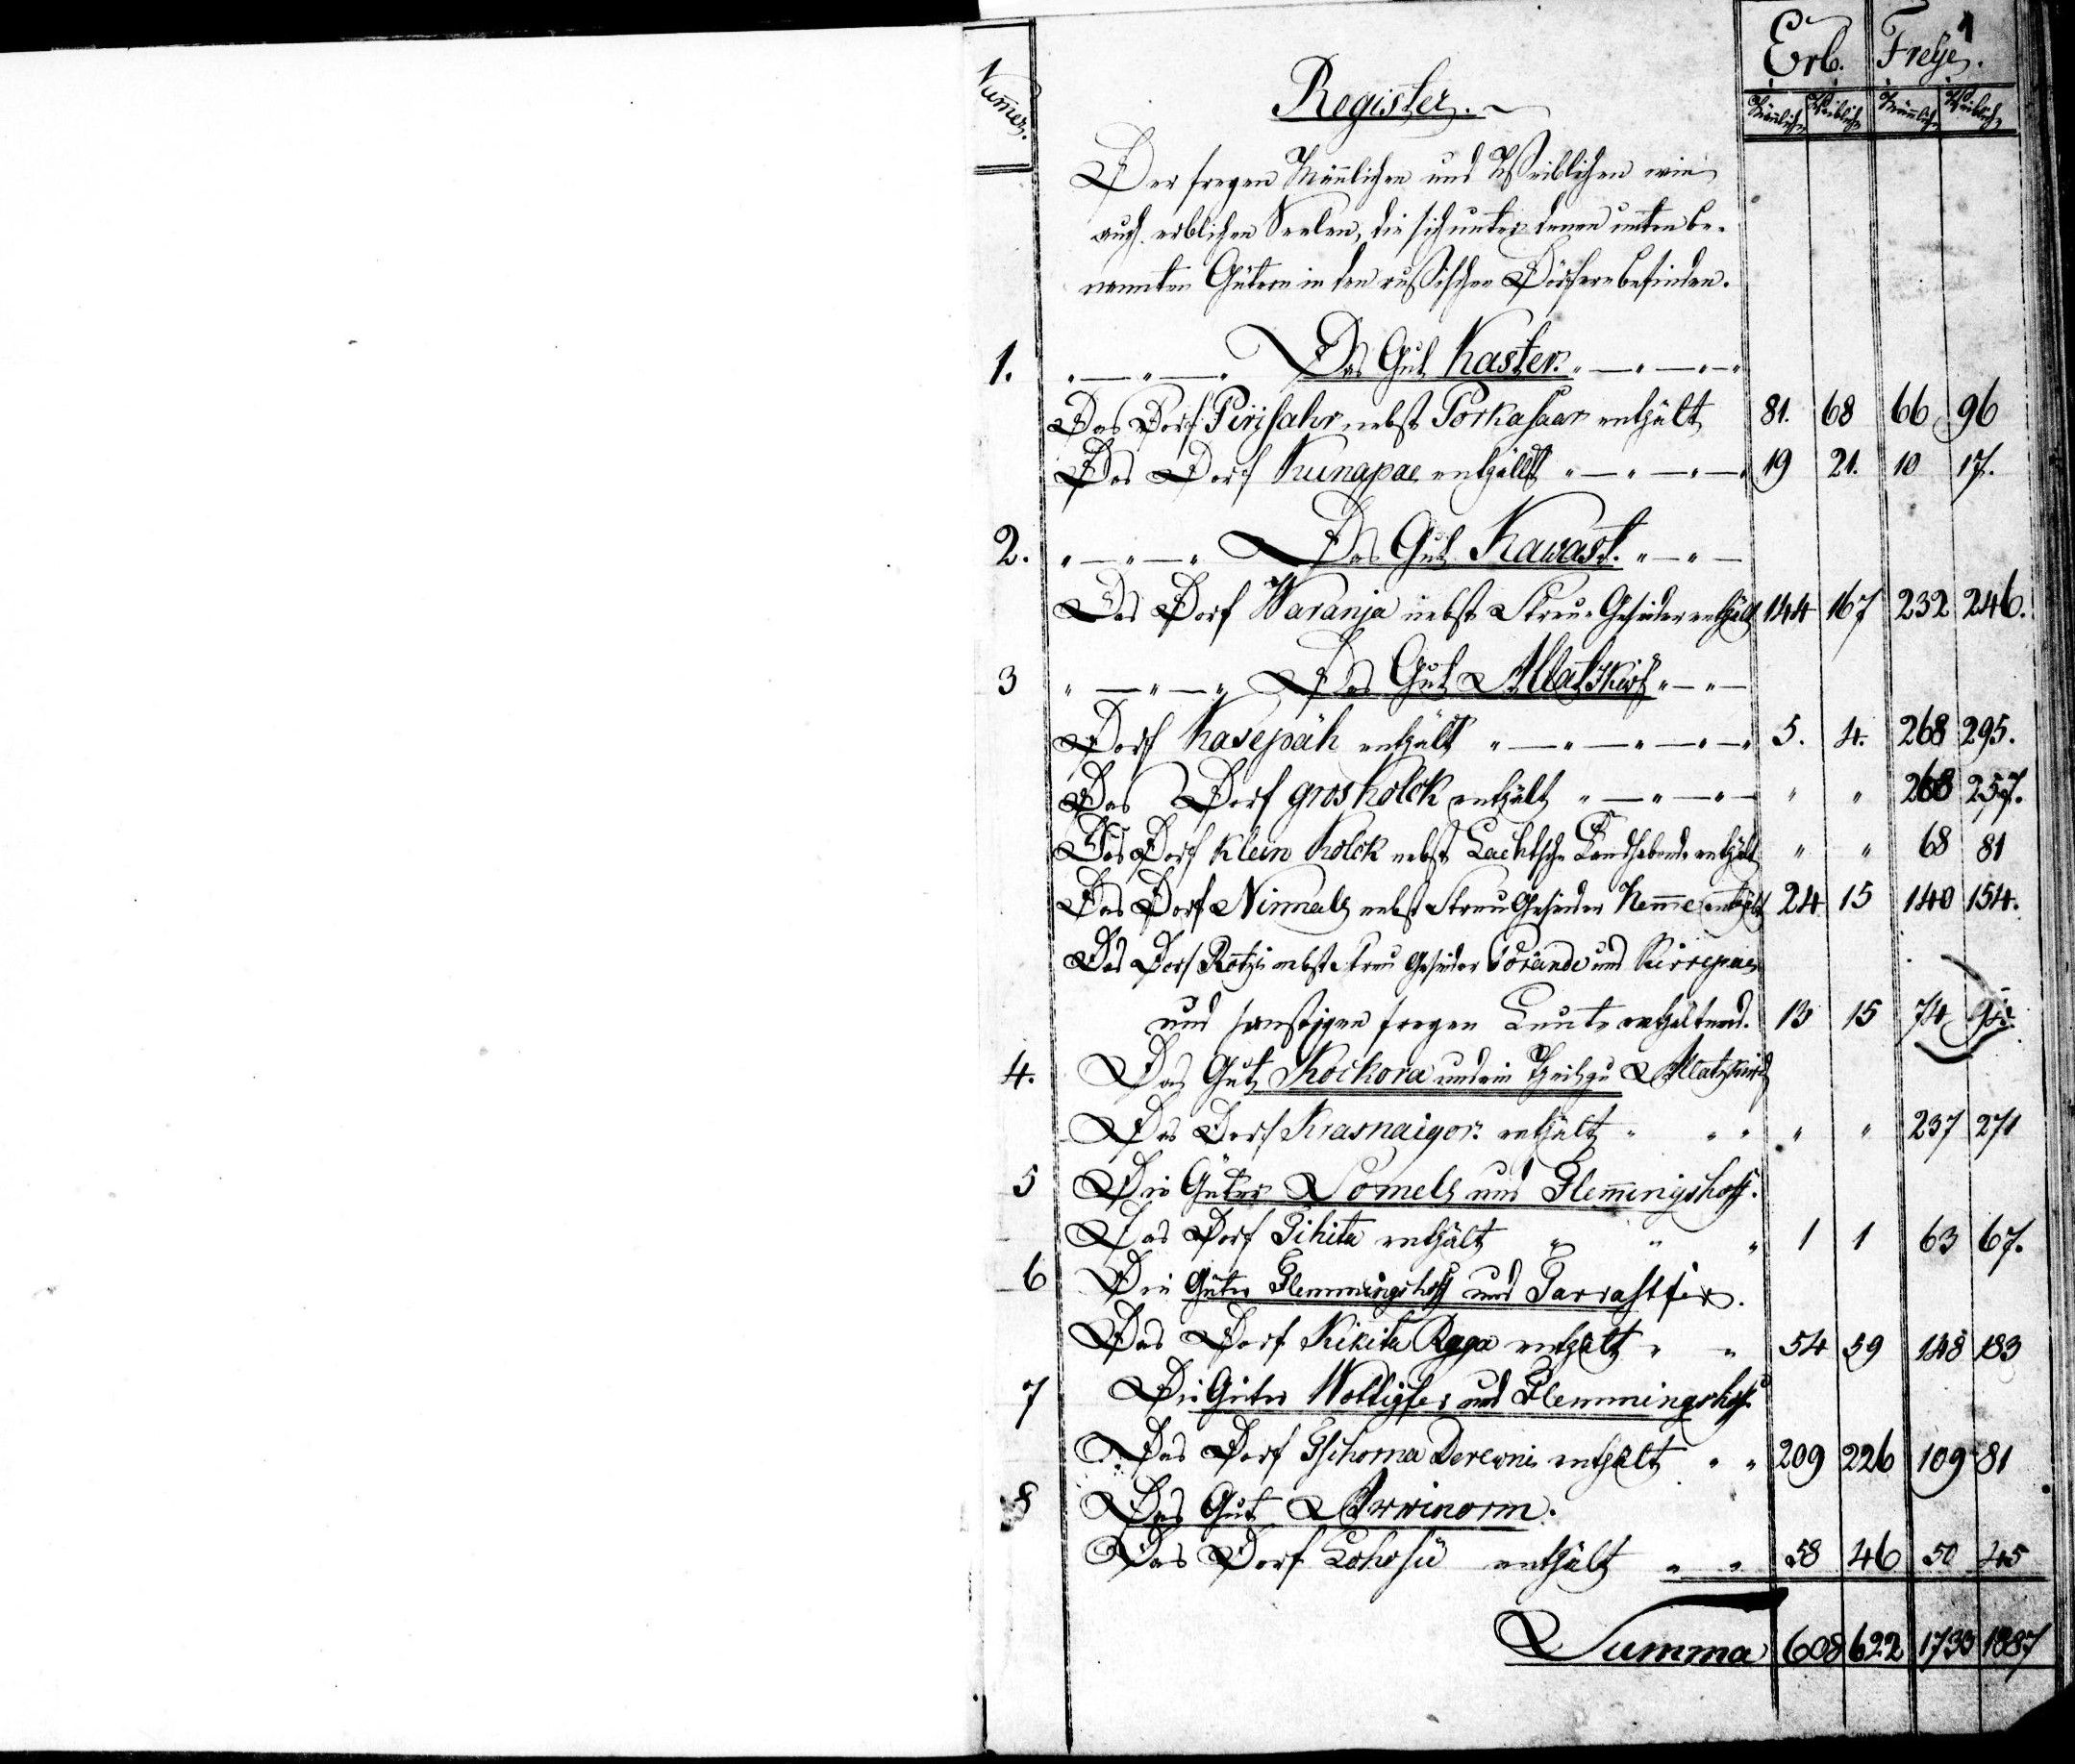 Erb. Freÿe. 1
Numer. Register. Männliche Weibliche Männliche Weibliche
Der freyen Mänlichen und Weiblichen wie
auch erblichen Seelen, die sich unter denen unten be-
nannten Gütern in den russischen Dörfern befinden.
1. Das Gut Kaster.
Das Dorf Pirisahr nebst Porkasaar enthält 81. 68 66 96
Das Dorf Kunapae enthällt 19 21. 10 17.
2. Das Gut Kawast.
Das Dorf Waranja nebst Streu-Gesinder enthält 144 167 232 246.
3 Das Gut Allatzkiwi
Dorf Kasepäh enthält 5. 4. 268 295.
Das Dorf gros Kolck enthält " " 268 257.
Das Dorf Klein Kolck nebst Lachtsche Landhabende enthält " " 68 81
Das Dorf Ninnal nebst Streu Gesinder Kemme enthält 24 15 140 154.
Das Dorf Rotzi nebst Streu Gesinder und Kirrepae
und sonstigen freyen Leute enthaltend. 13 15 74
4. Das Gut Kockora und ein Theil zu Allatzkiwi
Das Dorf Krasnaigor. enthält " " 237 271
5 Die Güter Somel und Flemingshoff.
Das Dorf Tikita enthält 1 1 63 67.
6 Die Güter Flemmingshoff und Tarrastfer.
Das Dorf Kikita Raja enthält 54 59 148 183
7 Die Güter Wottigfer und Flemmingshoff.
Das Dorf Tschorna Derewni enthält 209 226 109 81
8 Das Gut Awwinorm.
Das Dorf Lohosu enthält 58 46 50 45
Summa 608 622 1733 1887